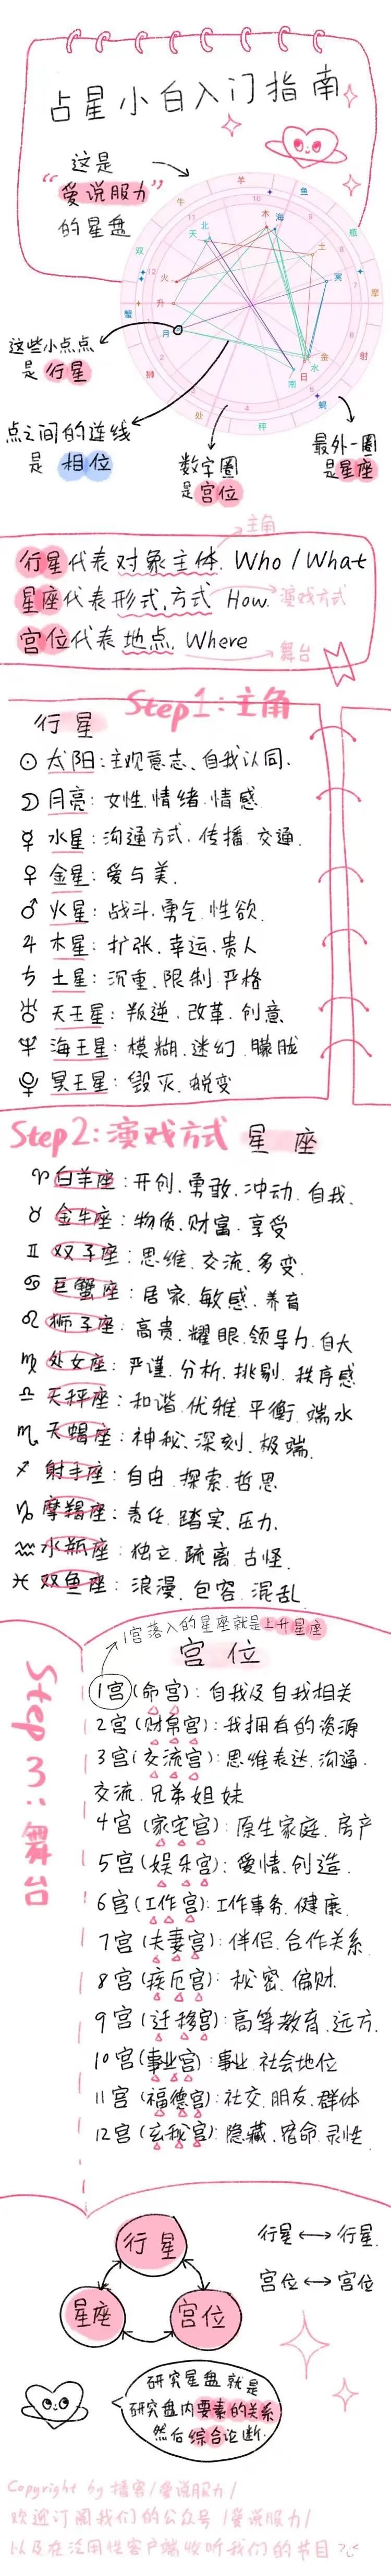 占星小白入门指南
这是
“爱说服力”
的星盘
羊
鱼
瓶
摩
射
蝎
秤
处
狮
蟹
双
牛
10
9
8
7
6
5
4
3
2
12
11
木 海
北
天
土
冥
火
升
月
金
水
日
南
这些小点点
是 行星
点之间的连线
是 相位
数字圈
是 宫位
最外一圈
是星座
主角
行星代表对象主体. Who / What
星座代表形式,方式 How. 演戏方式
宫位代表地点. Where
舞台
Step1:主角
行星
☉ 太阳:主观意志、自我认同.
☽ 月亮:女性.情绪.情感
☿ 水星:沟通方式.传播.交通.
♀ 金星:爱与美.
♂ 火星:战斗.勇气.性欲.
♃ 木星:扩张.幸运.贵人
♄ 土星:沉重.限制.严格
♅ 天王星:叛逆.改革.创意
♆ 海王星:模糊.迷幻.朦胧
♇ 冥王星:毁灭.蜕变
Step2:演戏方式 星座
♈ 白羊座:开创.勇敢.冲动.自我.
♉ 金牛座:物质.财富.享受
♊ 双子座:思维.交流.多变.
♋ 巨蟹座:居家.敏感.养育
♌ 狮子座:高贵.耀眼.领导力.自大
♍ 处女座:严谨.分析.挑剔.秩序感
♎ 天秤座:和谐.优雅.平衡.端水
♏ 天蝎座:神秘.深刻.极端.
♐ 射手座:自由.探索.哲思
♑ 摩羯座:责任.踏实.压力.
♒ 水瓶座:独立.疏离.古怪.
♓ 双鱼座:浪漫.包容.混乱
1宫落入的星座就是上升星座
Step3:舞台
宫位
1宫(命宫):自我及自我相关
2宫(财帛宫):我拥有的资源
3宫(交流宫):思维表达.沟通.
交流.兄弟姐妹
4宫(家宅宫):原生家庭.房产
5宫(娱乐宫):爱情.创造.
6宫(工作宫):工作事务.健康.
7宫(夫妻宫):伴侣.合作关系
8宫(疾厄宫):秘密.偏财.
9宫(迁移宫):高等教育.远方.
10宫(事业宫):事业.社会地位
11宫(福德宫):社交.朋友.群体
12宫(玄秘宫):隐藏.宿命.灵性
行星
星座
宫位
行星 ↔ 行星
宫位 ↔ 宫位
研究星盘就是
研究盘内要素的关系
然后综合论断.
Copyright by 播客/爱说服力/
欢迎订阅我们的公众号 /爱说服力/
以及在泛用性客户端收听我们的节目